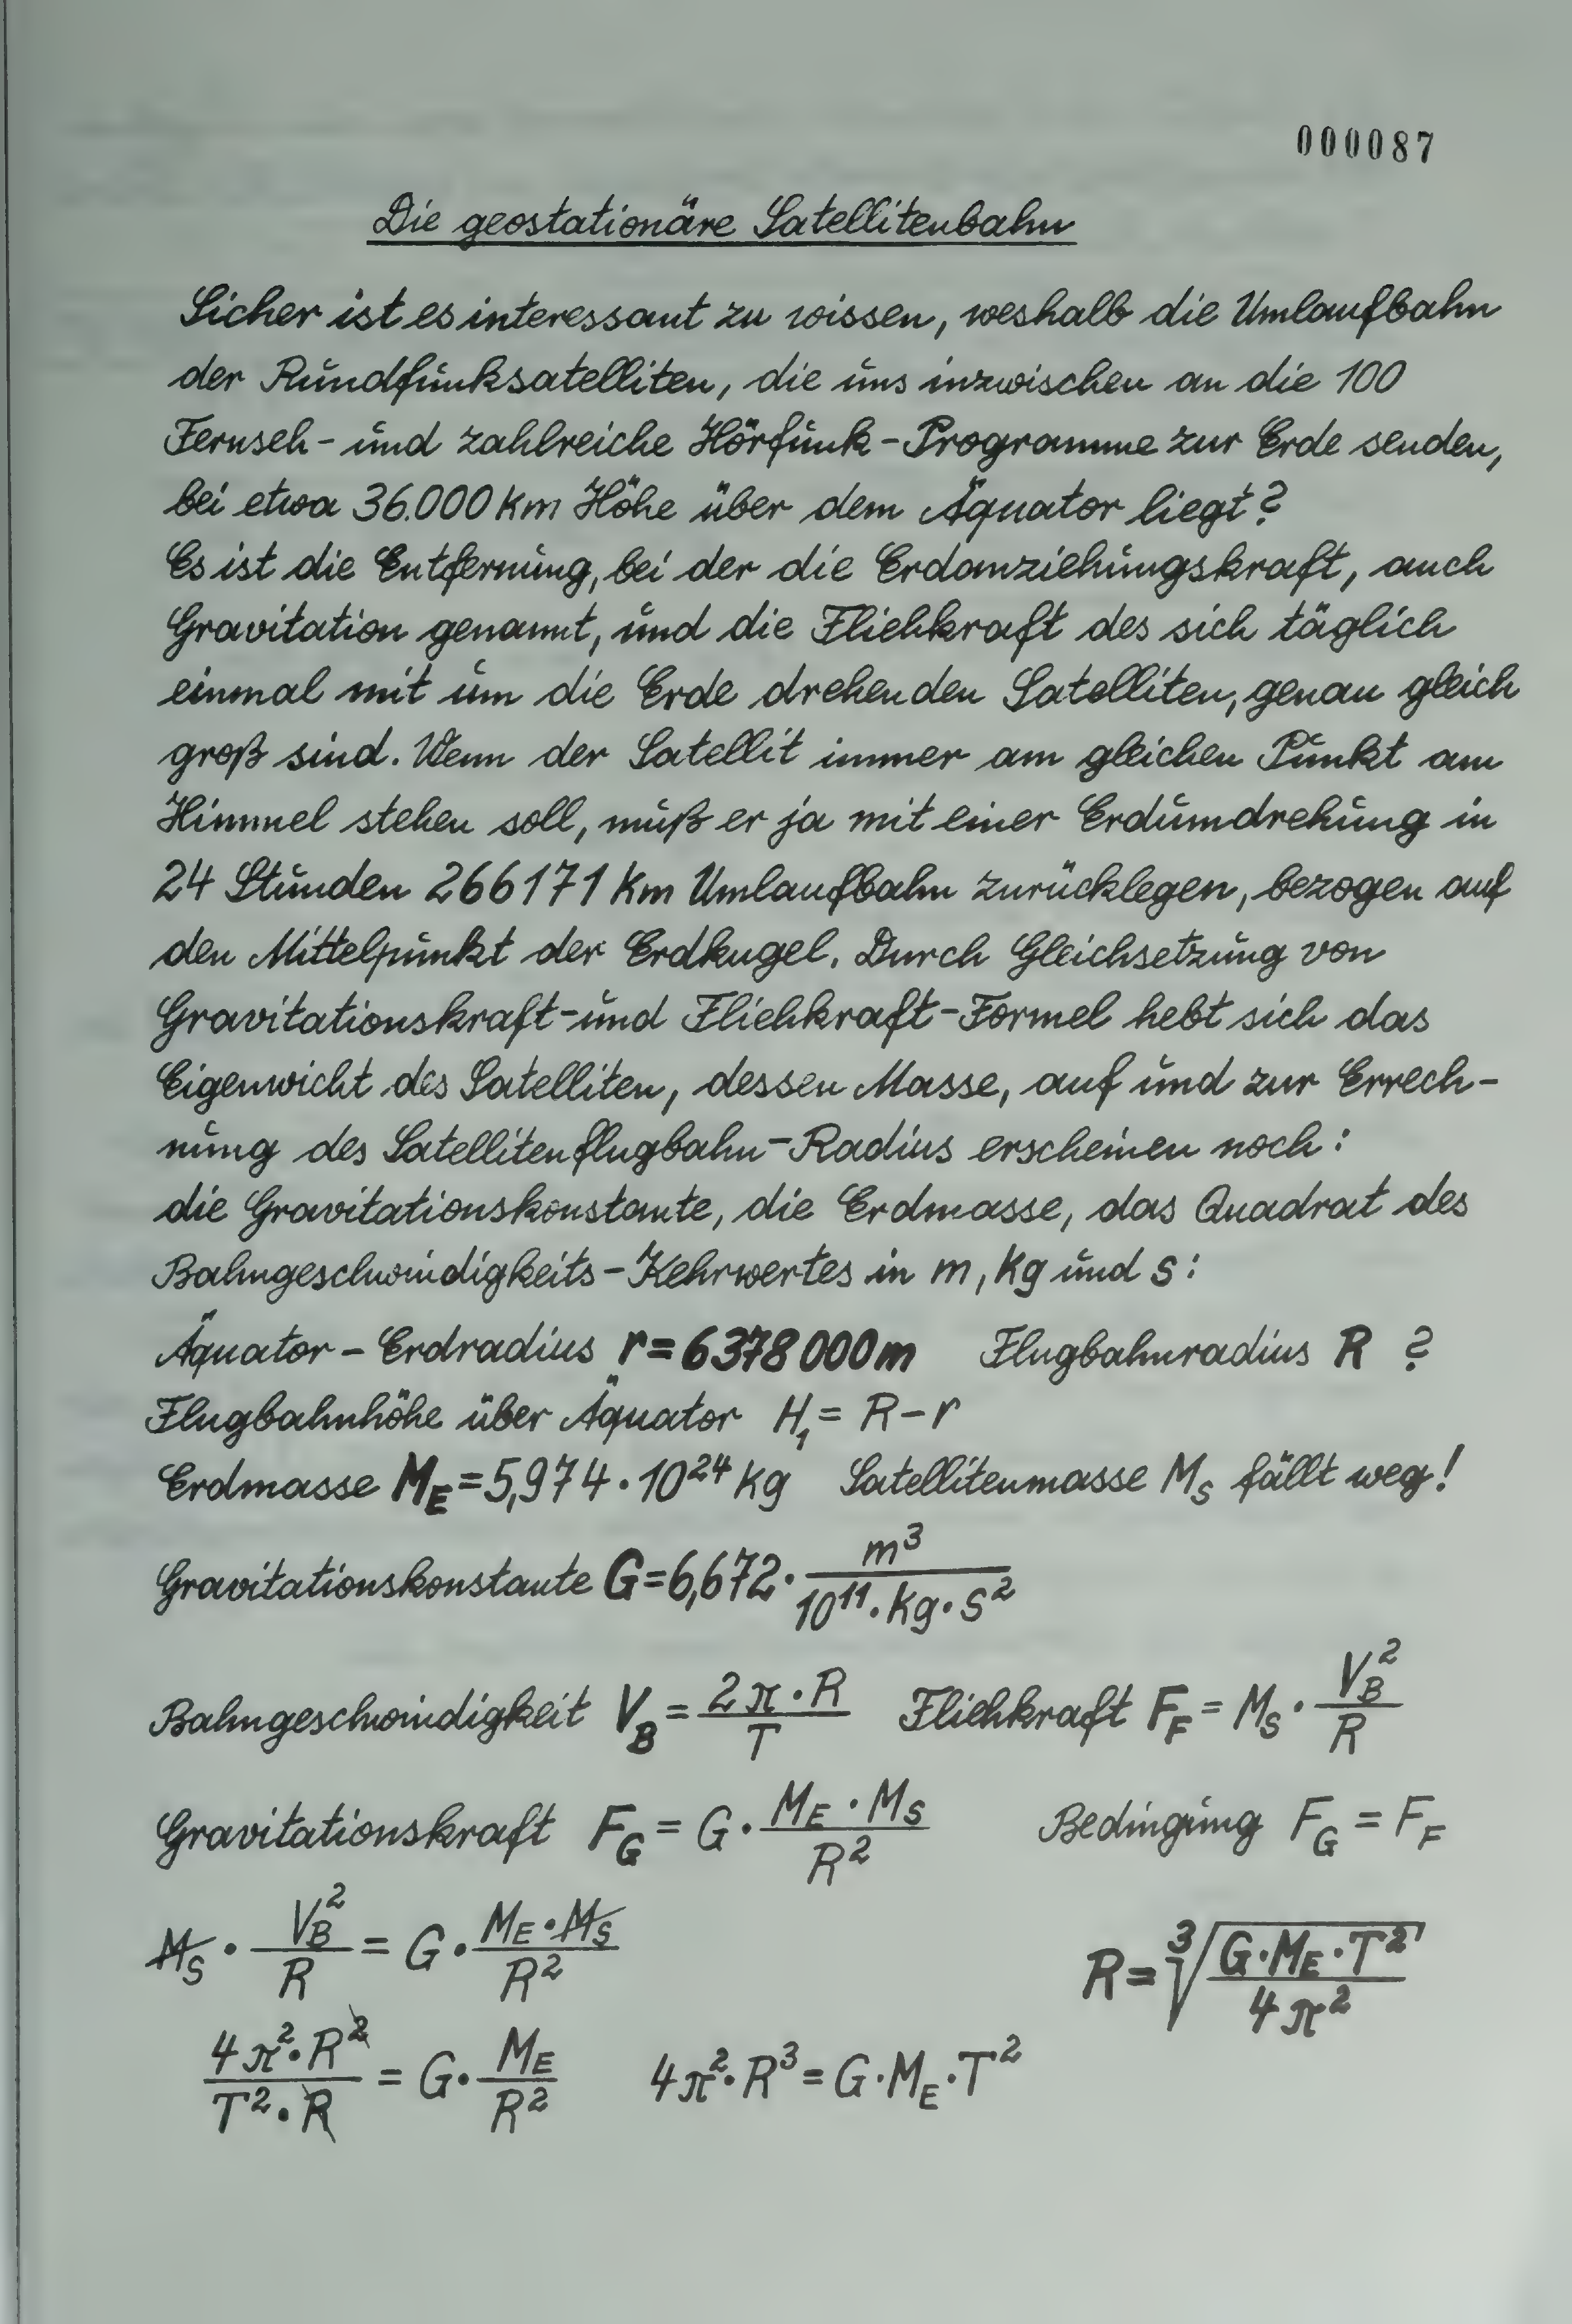 000087
Die geostationäre Satellitenbahn
Sicher ist es interessant zu wissen, weshalb die Umlaufbahn
der Rundfunksatelliten, die uns inzwischen an die 100
Fernseh- und zahlreiche Hörfunk-Programme zur Erde senden,
bei etwa 36.000 km Höhe über dem Äquator liegt?
Es ist die Entfernung, bei der die Erdanziehungskraft, auch
Gravitation genannt, und die Fliehkraft des sich täglich
einmal mit um die Erde drehenden Satelliten, genau gleich
groß sind. Wenn der Satellit immer am gleichen Punkt am
Himmel stehen soll, muß er ja mit einer Erdumdrehung in
24 Stunden 266171 km Umlaufbahn zurücklegen, bezogen auf
den Mittelpunkt der Erdkugel. Durch Gleichsetzung von
Gravitationskraft- und Fliehkraft-Formel hebt sich das
Eigenwicht des Satelliten, dessen Masse, auf und zur Errech-
nung des Satellitenflugbahn-Radius erscheinen noch:
die Gravitationskonstante, die Erdmasse, das Quadrat des
Bahngeschwindigkeits-Kehrwertes in m, kg und s:
Äquator-Erdradius r = 6378000m Flugbahnradius R ?
Flugbahnhöhe über Äquator H₁ = R-r
Erdmasse M_E = 5,974 · 10²⁴ kg Satellitenmasse M_S fällt weg!
Gravitationskonstante G = 6,672 · m³ / (10¹¹ · kg · s²)
Bahngeschwindigkeit V_B = 2π · R / T Fliehkraft F_F = M_S · V_B² / R
Gravitationskraft F_G = G · M_E · M_S / R² Bedingung F_G = F_F
M_S · V_B² / R = G · M_E · M_S / R² R = ³√(G · M_E · T² / 4π²)
4π² · R² / (T² · R) = G · M_E / R² 4π² · R³ = G · M_E · T²